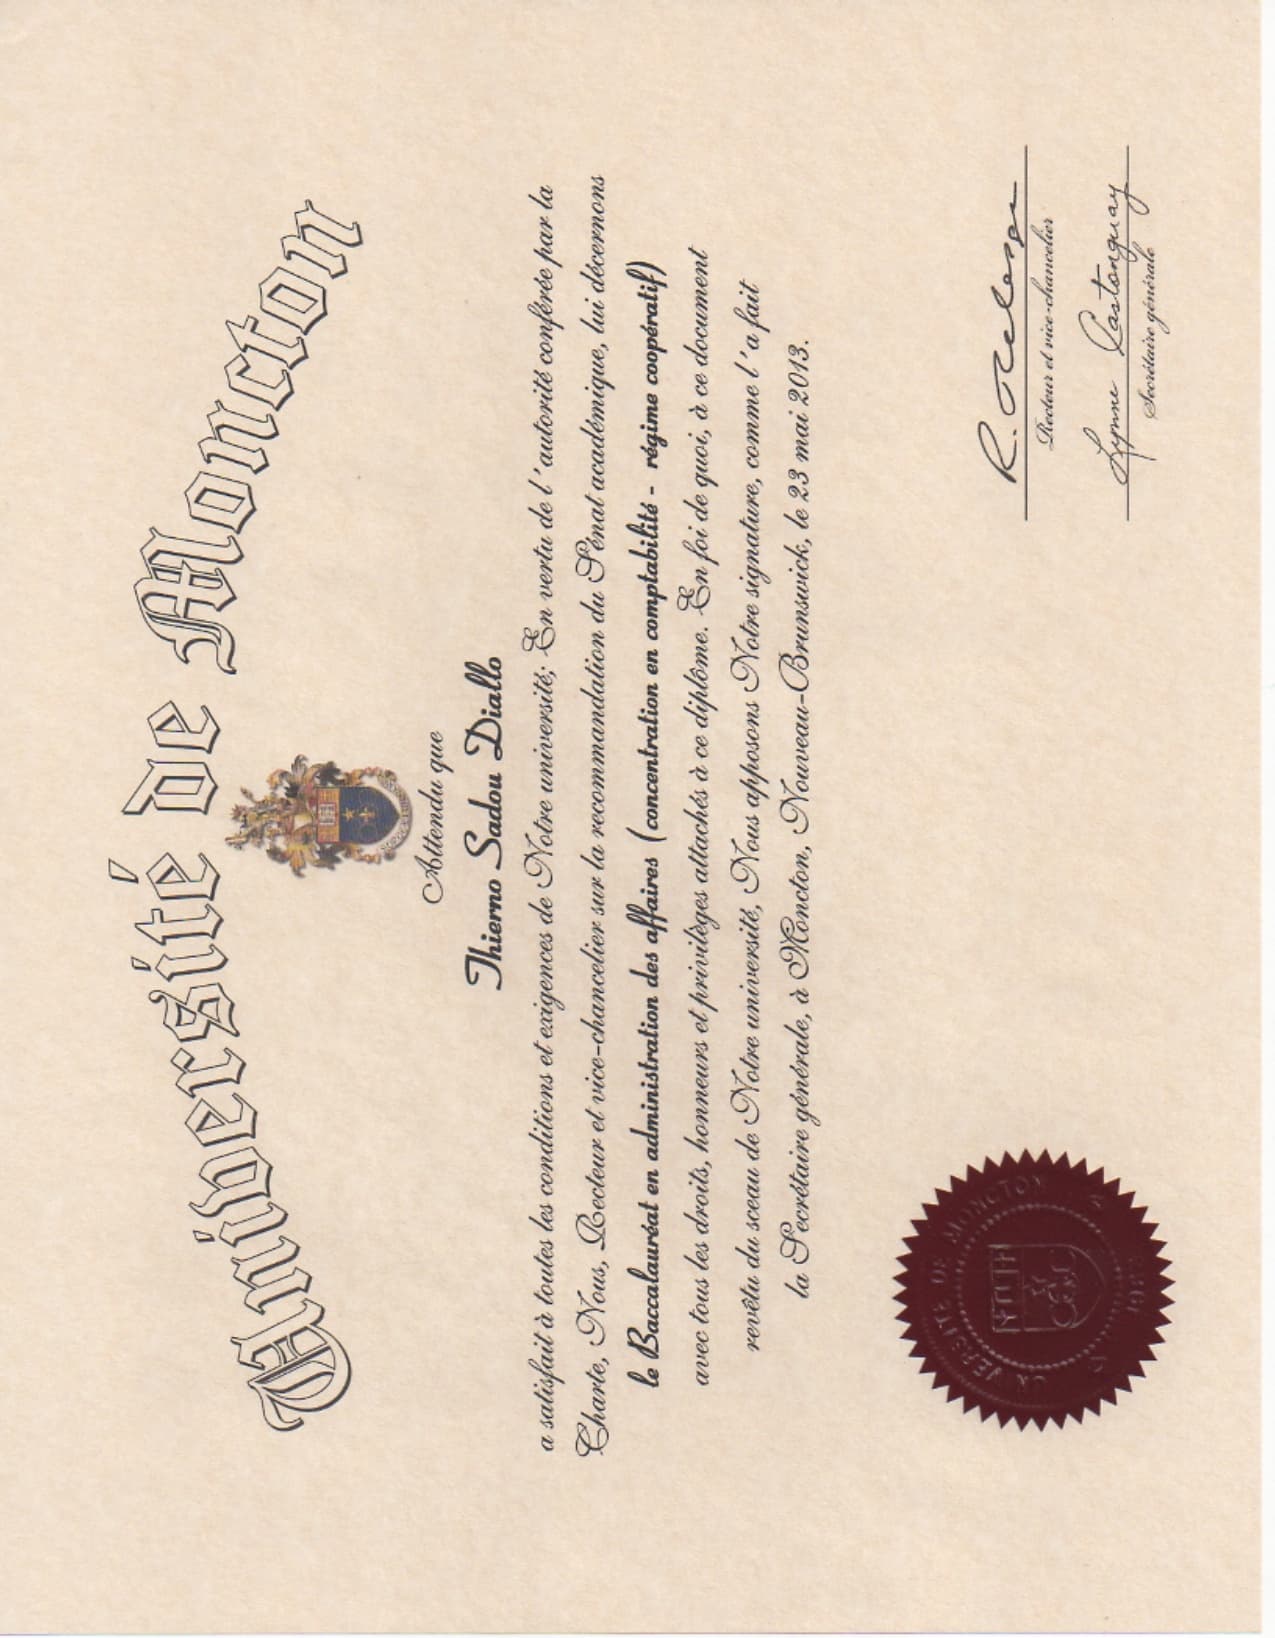 Université de Moncton
Attendu que
Thierno Sadou Diallo
a satisfait à toutes les conditions et exigences de Notre université; En vertu de l'autorité conférée par la
Charte, Nous, Recteur et vice-chancelier sur la recommandation du Sénat académique, lui décernons
le Baccalauréat en administration des affaires (concentration en comptabilité - régime coopératif)
avec tous les droits, honneurs et privilèges attachés à ce diplôme. En foi de quoi, à ce document
revêtu du sceau de Notre université, Nous apposons Notre signature, comme l'a fait
la Secrétaire générale, à Moncton, Nouveau-Brunswick, le 23 mai 2013.
UNIVERSITE DE MONCTON
1963
R.
Recteur et vice-chancelier
Lynne Castonguay
Secrétaire générale